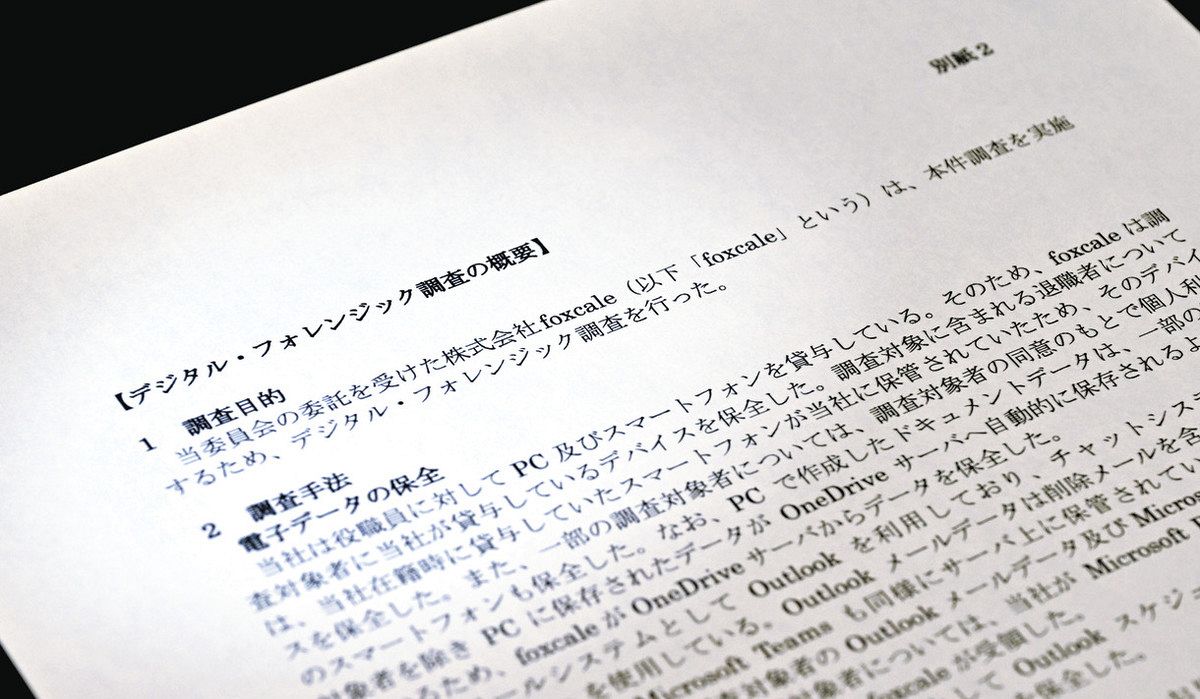 別紙2
【デジタル・フォレンジック調査の概要】
1 調査目的
当委員会の委託を受けた株式会社foxcale（以下「foxcale」という）は、本件調査を実施
するため、デジタル・フォレンジック調査を行った。
2 調査手法
電子データの保全
当社は役職員に対してPC及びスマートフォンを貸与している。そのため、foxcaleは調
査対象者に当社が貸与しているデバイスを保全した。調査対象に含まれる退職者について
は、当社在籍時に貸与していたスマートフォンが当社に保管されていたため、そのデバイ
スを保全した。また、一部の調査対象者については、調査対象者の同意のもとで個人利
のスマートフォンも保全した。なお、PCで作成したドキュメントデータは、一部の
対象者を除きPCに保存されたデータがOneDriveサーバへ自動的に保存されるよ
るため、foxcaleがOneDriveサーバからデータを保全した。
ールシステムとしてOutlookを利用しており、チャットシステ
を使用している。Outlookメールデータは削除メールを含
Microsoft Teamsも同様にサーバ上に保管されてい
対象者のOutlookメールデータ及びMicros
対象者については、当社がMicrosoft
foxcaleが受領した。
Outlookスケジ
保全した。